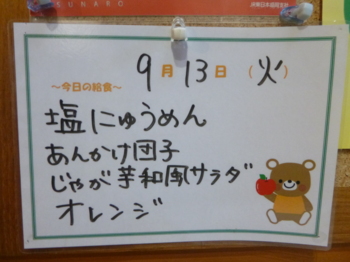 9月13日（火）
～今日の給食～
塩にゅうめん
あんかけ団子
じゃが芋和風サラダ
オレンジ